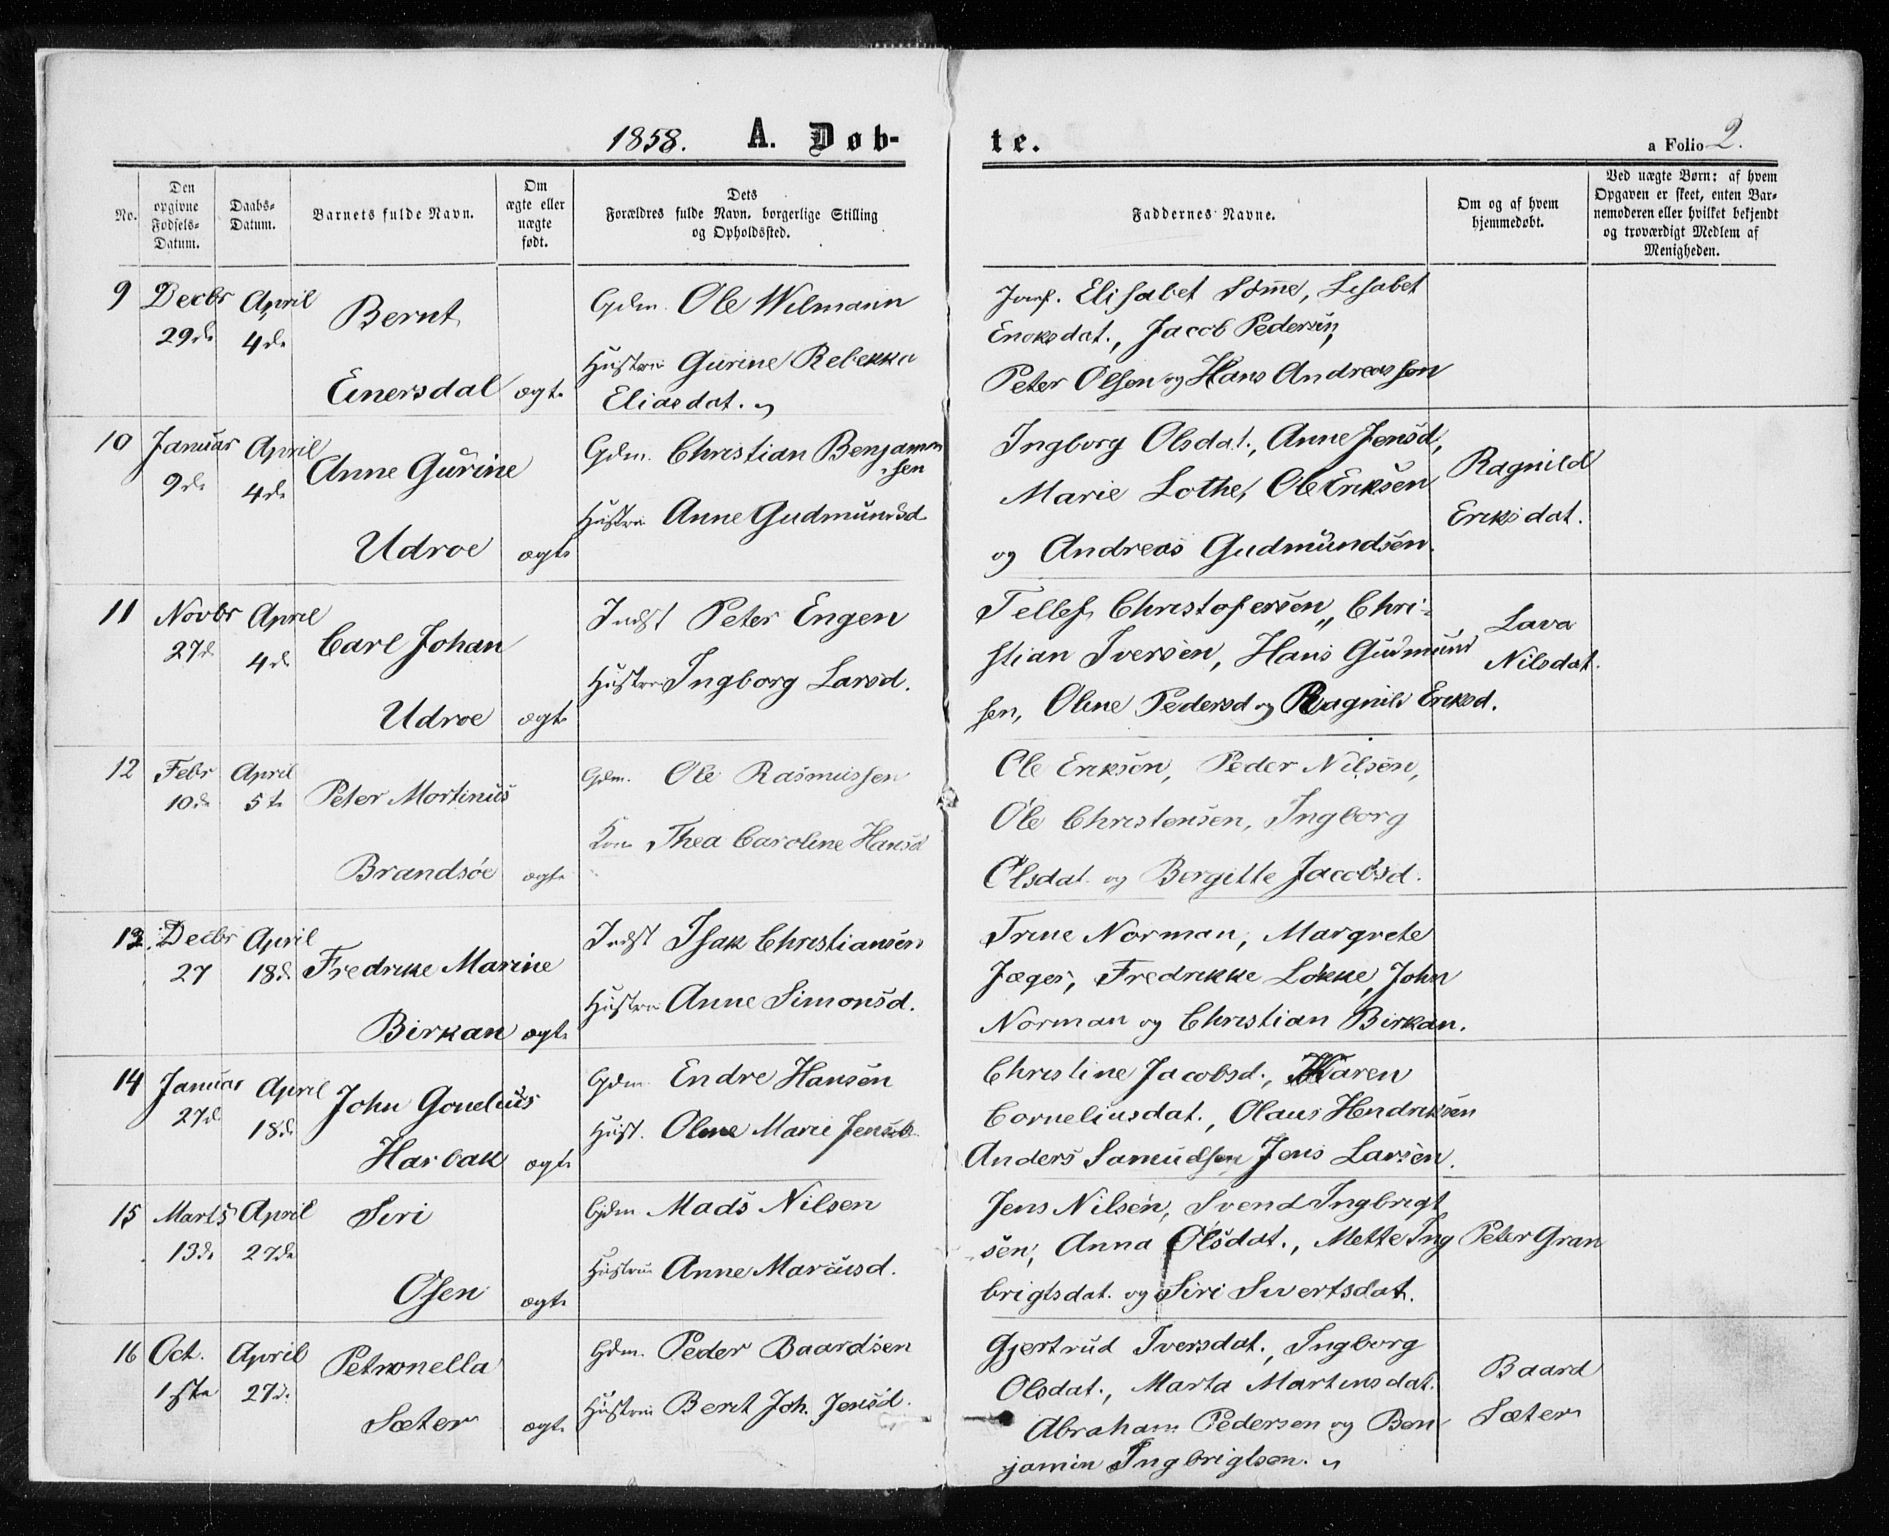 1858. A. Døbte.
a Folio 2.
No.
Den opgivne Fødsels-Datum.
Daabs-Datum.
Barnets fulde Navn.
Om ægte eller uægte født.
Dets Forældres fulde Navn, borgerlige Stilling og Opholdssted.
Faddernes Navne.
Om og af hvem hjemmedøbt.
Ved uægte Børn: af hvem Opgaven er skeet, enten Barnemoderen eller hvilket bekjendt og troværdigt Medlem af Menigheden.
9 Decbr 29de April 4de
Bernt
Einersdal ægte
Gdm. Ole Wilmann
Hustru Gurine Rebekka
Eliasdat.
Jomf. Elisabet Sõme, Lisabet
Enoksdat., Jacob Pedersen,
Peter Olsen og Hans Andreassen
10 Januar 9de April 4de
Anne Gurine
Udroe ægte
Gdm. Christian Benjamin
sen
Hustru Anne Gudmundsd
Ingborg Olsdat., Anne Jensd,
Marie Lothe, Ole Eriksen
og Andreas Gudmundsen.
Ragnild
Eriksdat.
11 Novbr 27de April 4de
Carl Johan
Udroe ægte
Indst Peter Engen
Hustru Ingborg Larsd.
Tellef Christofersen, Chri-
stian Iversen, Hans Gudmund
sen, Oline Pedersd og Ragnild Eriksd.
Lava
Nilsdat.
12 Febr 10de April 5te
Peter Mortinus
Brandsøe ægte
Gdm. Ole Rasmussen
Kone Thea Caroline Hansd
Ole Eriksen, Peder Nilsen,
Ole Christensen, Ingborg
Olsdat. og Bergitte Jacobsd.
13. Decbr 27 April 18de
Fredrike Marine
Birkan ægte
Indst Isak Christiansen
Hustru Anne Simonsd.
Trine Norman, Margrete
Jæger, Fredrikke Løkke, John
Norman og Christian Birkan.
14 Januar 27de April 18de
John Gonelius
Harbak ægte
Gdm. Endre Hansen
Hust. Oline Marie Jensd.
Christine Jacobsd., Karen
Corneliusdat., Olaus Hendriksen
Anders Samuelsen Jens Larsen.
15 Marts 13de April 27de
Siri
Osen ægte
Gdm Mads Nilsen
Hustru Anne Marcusd.
Jens Nilsen, Svend Ingbrigt
sen, Anna Olsdat., Mette Ing
brigtsdat. og Siri Siwertsdat.
Peter Gran
16 Oct. 1ste April 27de
Petronella
Sæter ægte
Gdm. Peder Baardsen
Hustru Berit Joh. Jensd.
Gjertrud Iversdat., Ingborg
Olsdat., Marta Martinsdat.
Abraham Pedersen og Ben
jamin Ingbrigtsen.
Baard
Sæter